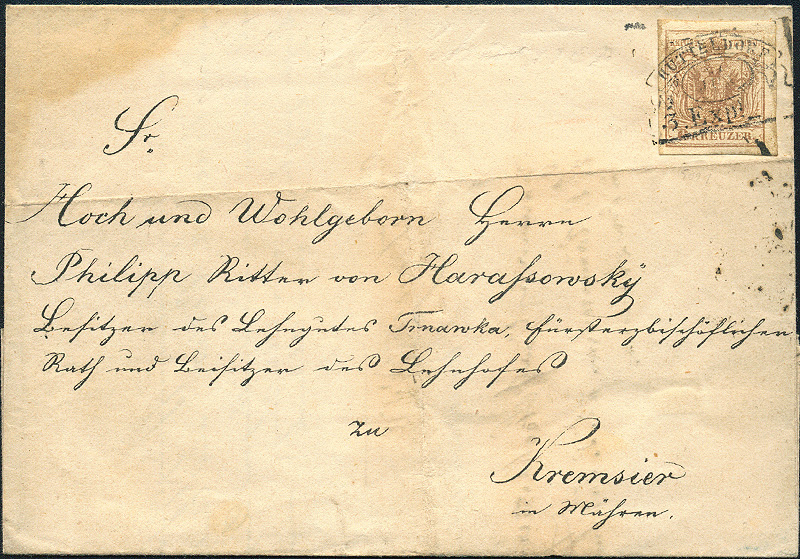 HÜTTELDORF
3. Exp.
KREUZER
Sr.
Hoch und Wohlgeborn Herrn
Philipp Ritter von Haraſsowskÿ
Besitzer des Lehngutes Trnawka, fürsterzbischöflicher
Rath und Beisitzer des Lehnhofes
zu
Kremsier
in Mähren.